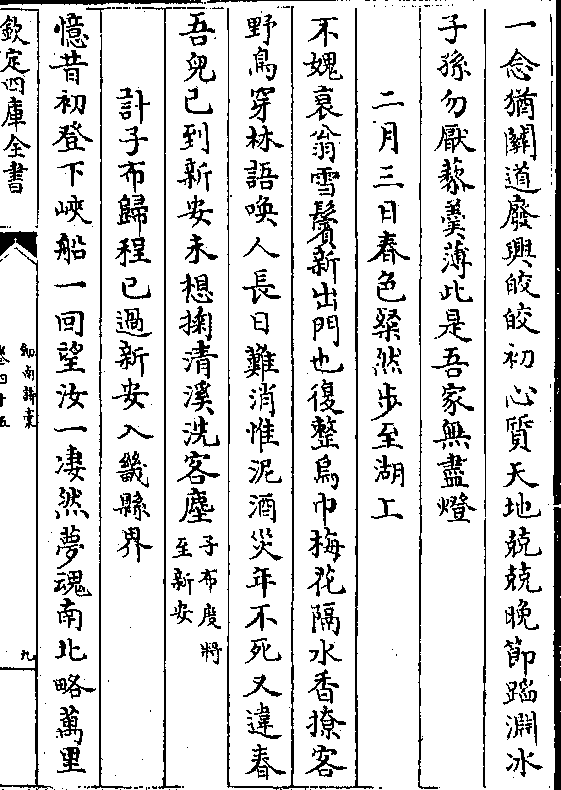 一念猶關道廢興皎皎初心質天地兢兢晚節蹈淵冰
子孫勿厭藜羹薄此是吾家無盡燈
二月三日春色粲然步至湖上
不媿衰翁雪鬢新出門也復整烏巾梅花隔水香撩客
野鳥穿林語喚人長日難消惟泥酒災年不死又違春
吾兒已到新安未想掬清溪洗客塵子布度將至新安
計子布歸程已過新安入畿縣界
憶昔初登下峽船一回望汝一凄然夢魂南北略萬里
欽定四庫全書
劍南詩稾
卷四十五
九